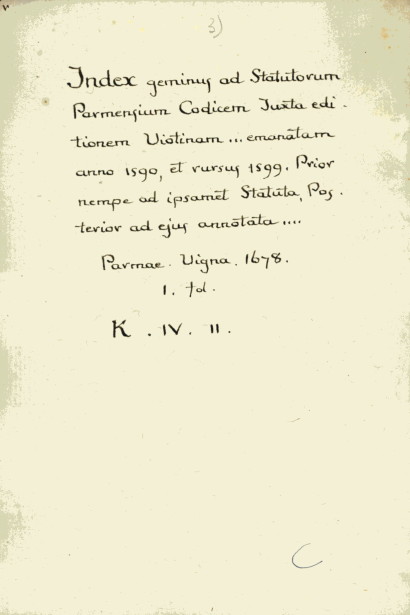 3)
Index geminus ad Statutorum
Parmensium Codicem Juxta edi-
tionem Viotinam ... emanatam
anno 1590, et rursus 1599. Prior
nempe ad ipsamet Statuta, Pos-
terior ad ejus annotata ....
Parmae. Vigna. 1678.
1. fol.
K. IV. II.